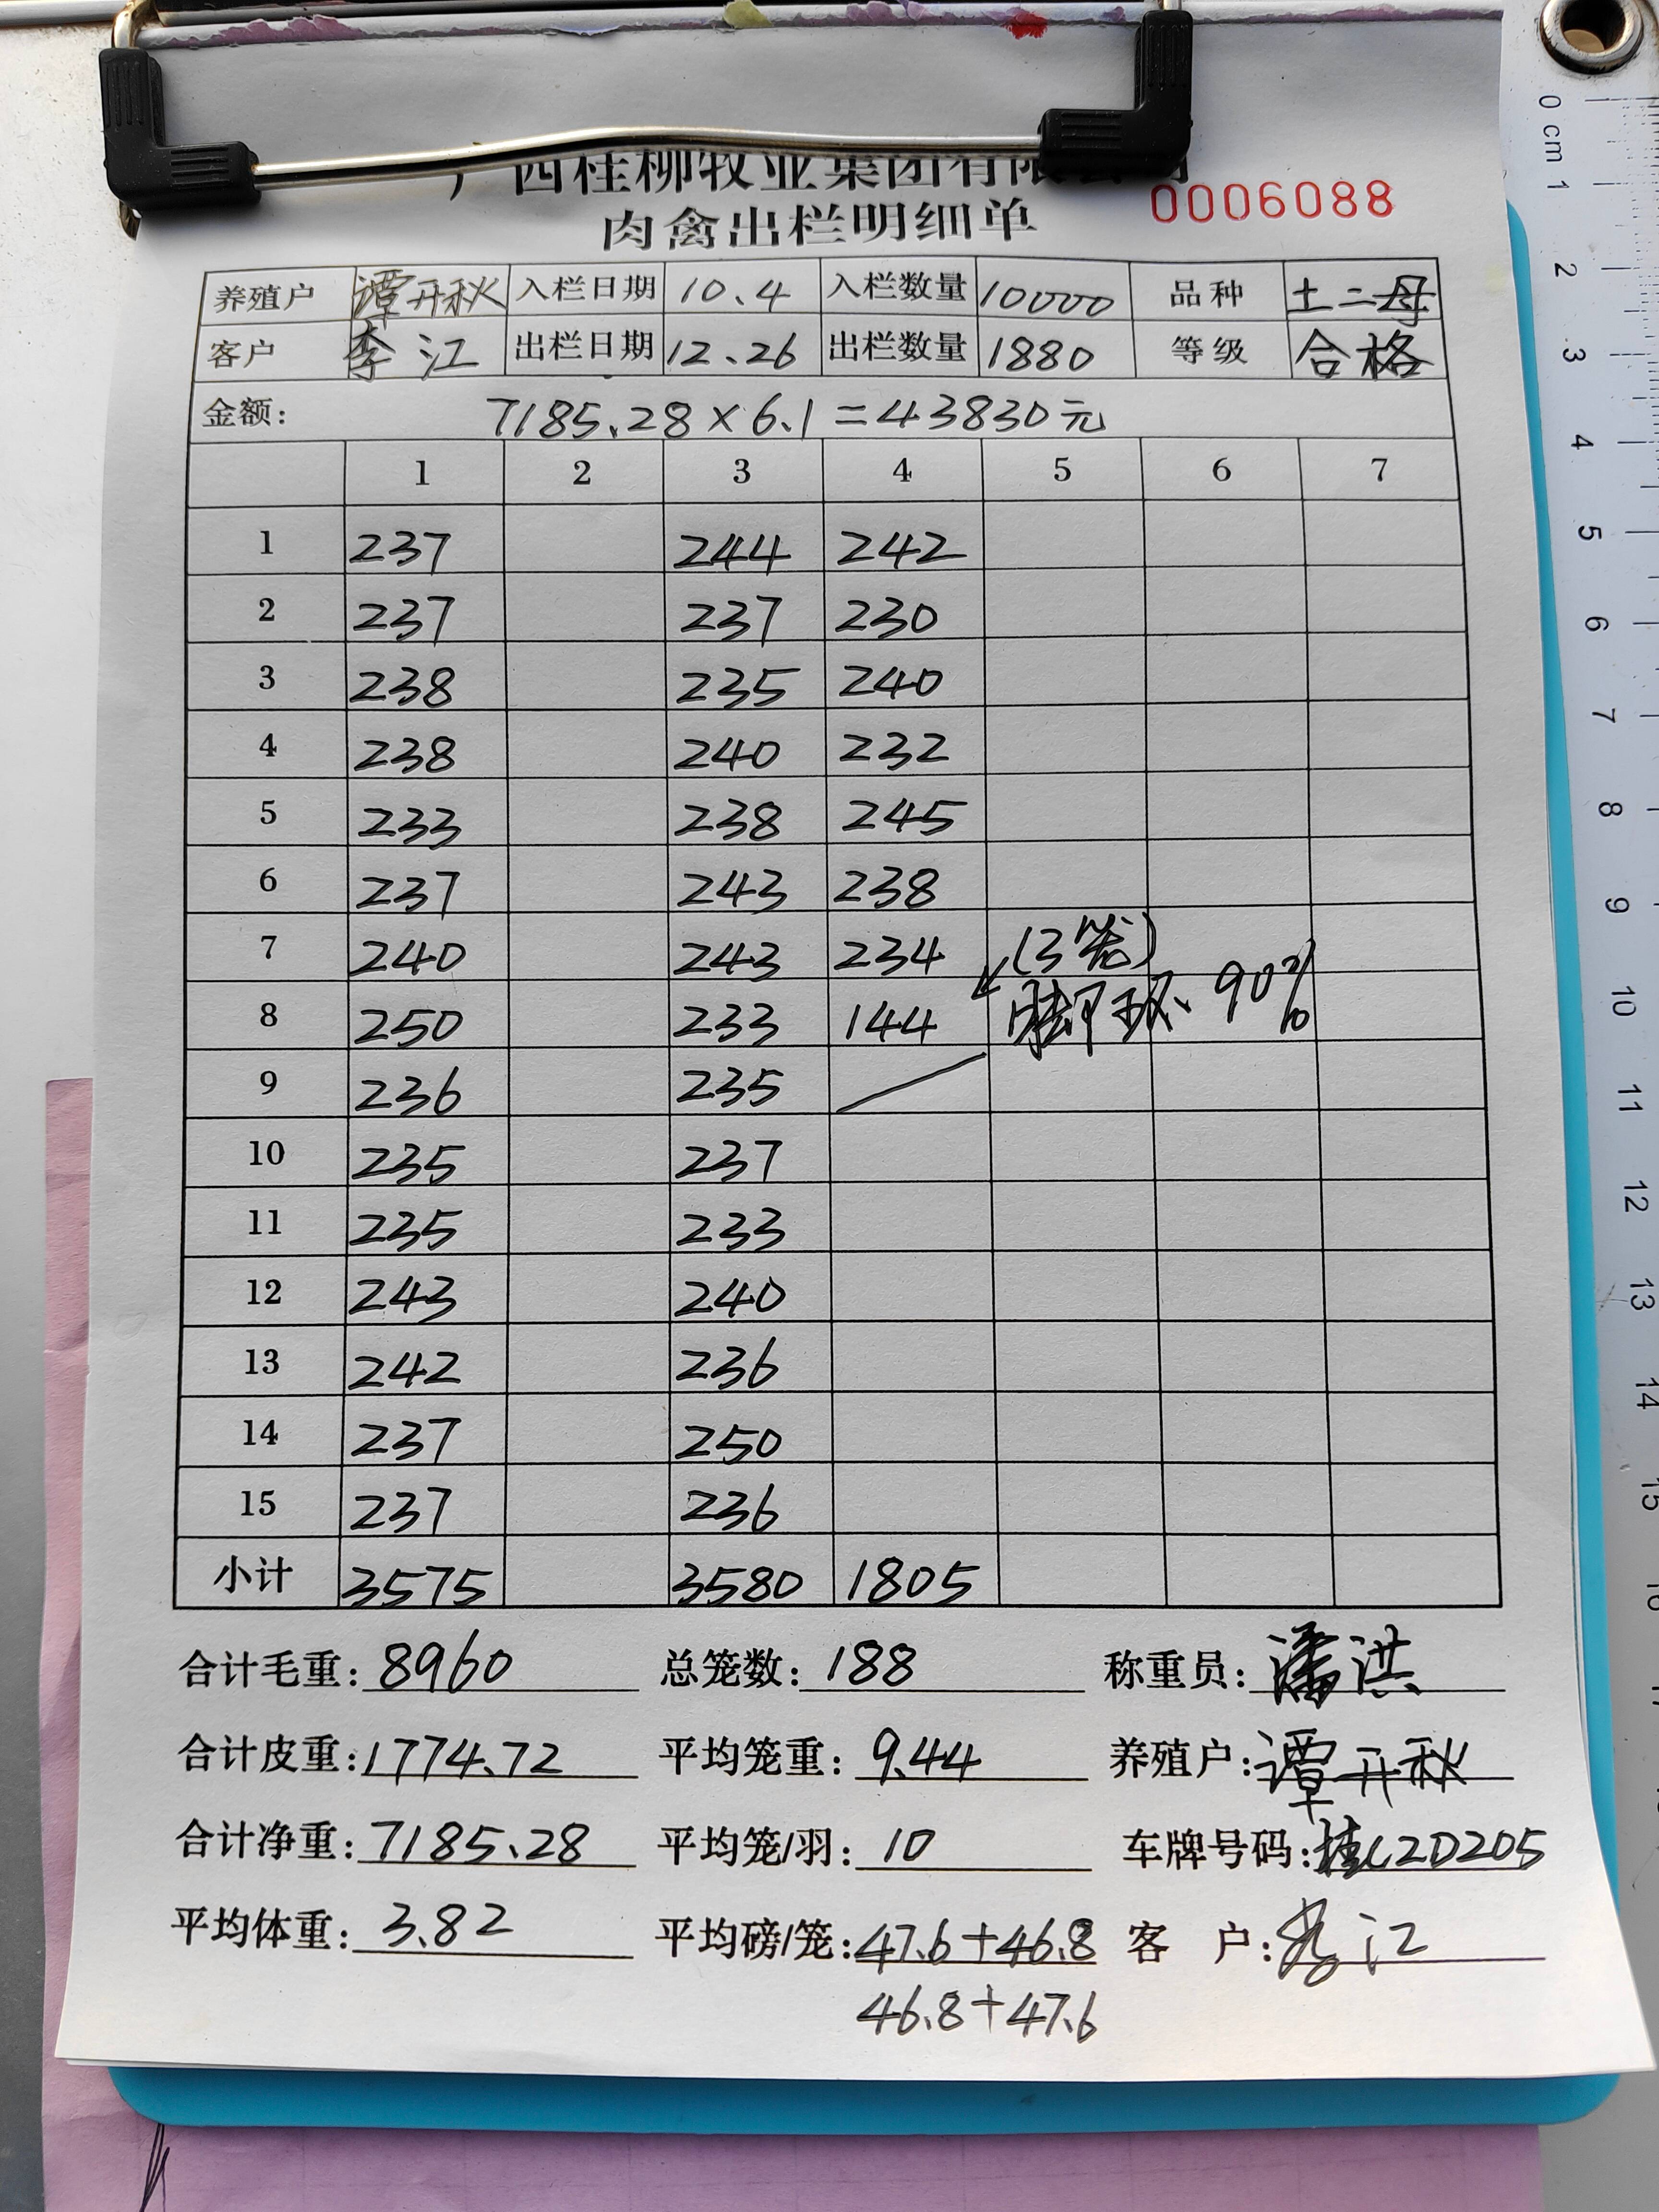 广西桂柳牧业集团有限公司
肉禽出栏明细单 0006088
养殖户 谭开秋 入栏日期 10.4 入栏数量 10000 品种 土二母
客户 李江 出栏日期 12.26 出栏数量 1880 等级 合格
金额: 7185.28×6.1=43830元
1 2 3 4 5 6 7
1 237 244 242
2 237 237 230
3 238 235 240
4 238 240 232
5 233 238 245
6 237 243 238
7 240 243 234 (3笼)
8 250 233 144 脚环、90%
9 236 235
10 235 237
11 235 233
12 243 240
13 242 236
14 237 250
15 237 236
小计 3575 3580 1805
合计毛重: 8960 总笼数: 188 称重员: 潘洪
合计皮重: 1774.72 平均笼重: 9.44 养殖户: 谭开秋
合计净重: 7185.28 平均笼/羽: 10 车牌号码: 桂L2D205
平均体重: 3.82 平均磅/笼: 47.6+46.8 客 户: 李江
46.8+47.6
0 cm 1
2
3
4
5
6
7
8
9
10
11
12
13
14
15
16
17